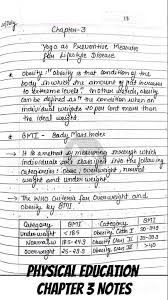 13
Chapter-3
Yoga as Preventive Measure
for Lifestyle Disease
Obesity:- "Obesity is that condition of the
body where the amount of fat increases
to extreme levels." In other words, obesity
can be defined as "the condition when an
individual weighs 20 per cent more than
the ideal weight.
BMI - Body Mass Index
→ It is a method of measuring through which
individuals are classified into the following
categories: obese, overweight, normal
weight and underweight.
→ The WHO criteria for overweight and
obesity by BMI
Category BMI Category BMI
Underweight <18.5 Obesity Class I 30-34.9
Normal 18.5-24.9 Obesity Class II 35-39.9
Overweight 25-29.9 Obesity Class III >40
PHYSICAL EDUCATION
CHAPTER 3 NOTES